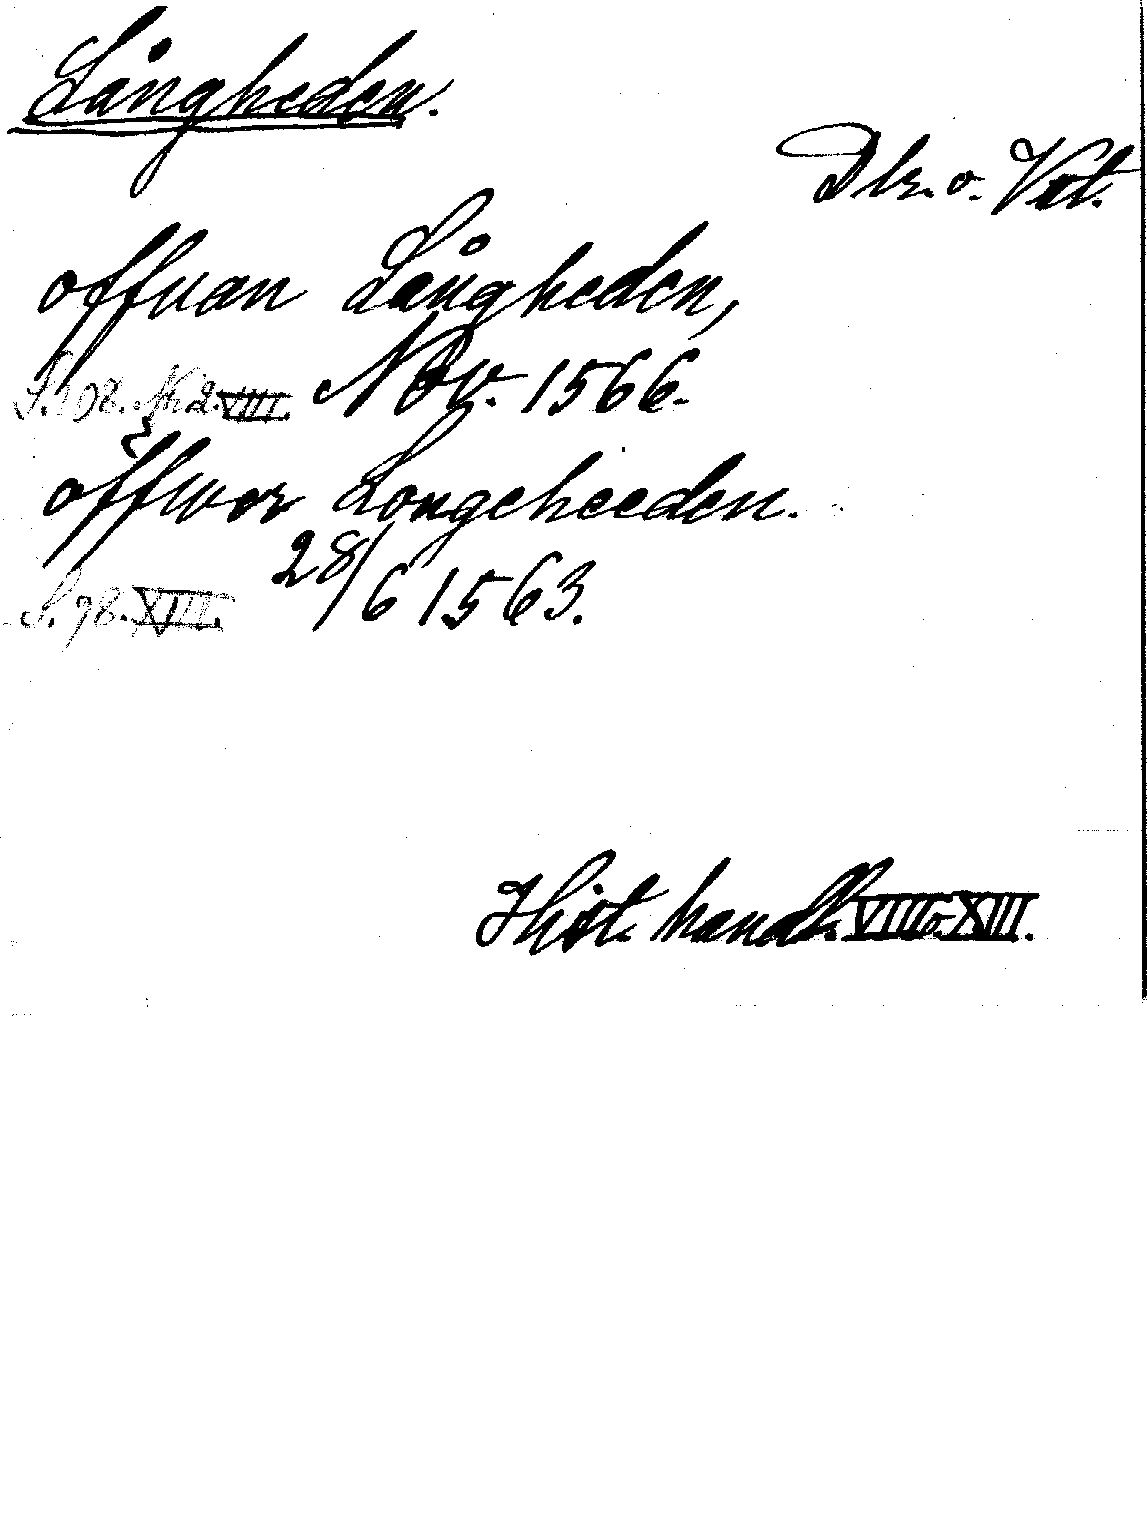 Långheden.
Dlr. o. Vst.
offuan Långheden,
S. 108. N. 2. VIII. Nov. 1566.
öffwer Longeheeden.
S. 98. XIII. 28/6 1563.
Hist. handl. VIII o. XIII.